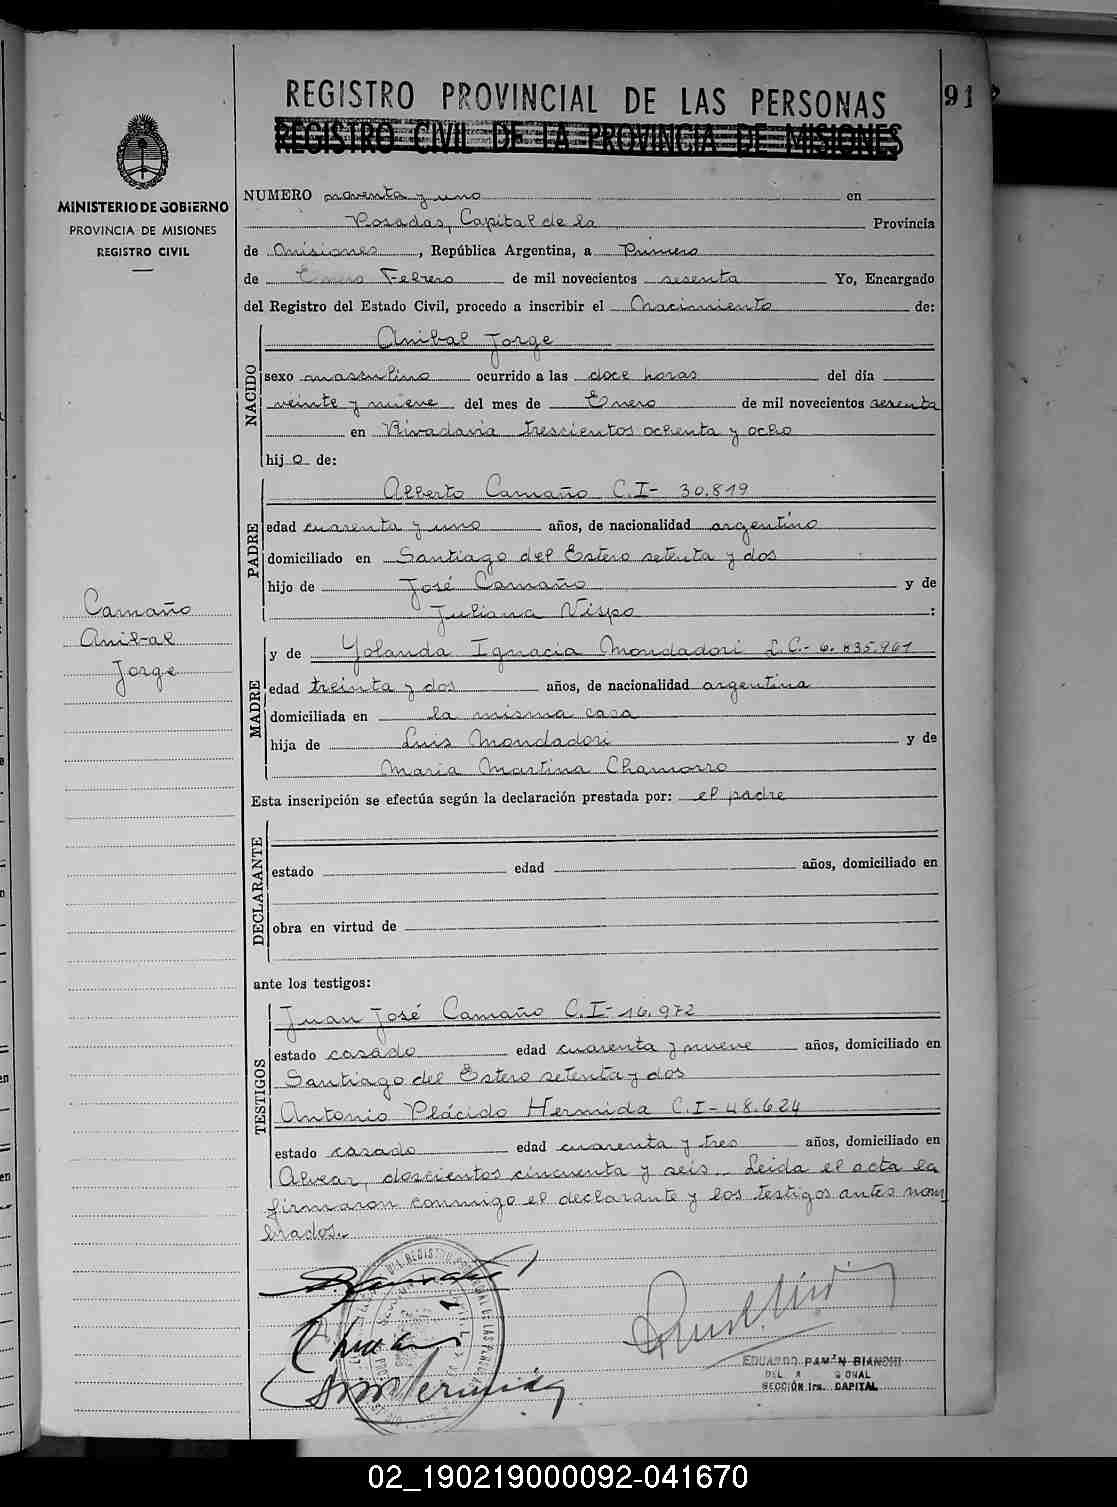 REGISTRO PROVINCIAL DE LAS PERSONAS
91
REGISTRO CIVIL DE LA PROVINCIA DE MISIONES
MINISTERIO DE GOBIERNO
PROVINCIA DE MISIONES
REGISTRO CIVIL
NUMERO noventa y uno en
Posadas, Capital de la Provincia
de Misiones, República Argentina, a Primero
de Enero Febrero de mil novecientos sesenta Yo, Encargado
del Registro del Estado Civil, procedo a inscribir el Nacimiento de:
NACIDO
Anibal Jorge
sexo masculino ocurrido a las doce horas del día
veinte y nueve del mes de Enero de mil novecientos sesenta
en Rivadavia trescientos ochenta y ocho
hijo de:
PADRE
Alberto Camaño C.I- 30.819
edad cuarenta y uno años, de nacionalidad argentino
domiciliado en Santiago del Estero setenta y dos
hijo de José Camaño y de
Juliana Vispo :
Camaño
Anibal
Jorge
MADRE
y de Yolanda Ignacia Mondadori L.C.- 6.835.961
edad treinta y dos años, de nacionalidad argentina
domiciliada en la misma casa
hija de Luis Mondadori y de
Maria Martina Chamorro
Esta inscripción se efectúa según la declaración prestada por: el padre
DECLARANTE
estado edad años, domiciliado en
obra en virtud de
ante los testigos:
TESTIGOS
Juan José Camaño C.I- 16.972
estado casado edad cuarenta y nueve años, domiciliado en
Santiago del Estero setenta y dos
Antonio Plácido Hermida C.I- 48.624
estado casado edad cuarenta y tres años, domiciliado en
Alvear, doscientos cincuenta y seis. Leida el acta la
firmaron conmigo el declarante y los testigos antes nom
brados.
EDUARDO RAMÓN BIANCHI
SECCIÓN 1ra. CAPITAL
02_190219000092-041670